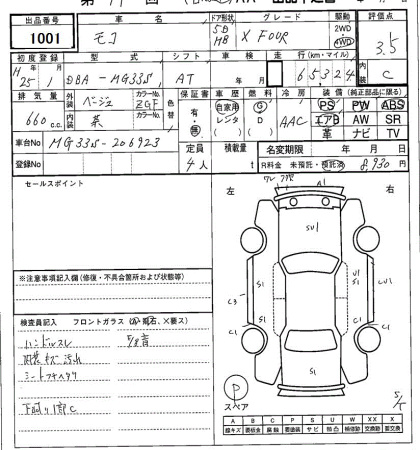 出品番号 車名 ドア形状 グレード 駆動 評価点
1001 モコ 5D HB X FOUR 2WD 4WD 3.5
初度登録 型式 シフト 車検 走行(km・マイル) 内装
H25年1月 DBA-MG33S AT 年 月 65324 C
排気量 外装 ベージュ カラーNo. ZGF 色替 保証書 車歴 燃料 冷房 装備(純正部品に限る)
660c.c. 内装 茶 カラーNo. 有・無 自家用 レンタ G D AAC PS PW ABS
エアB AW SR
革 ナビ TV
車台No MG33S-206923 定員 積載量 名変期限 年 月 日
登録No 4人 t R料金 未預託・預託済 8,930円
セールスポイント
左 右
ワレ A1
SU1
S1 S1
UV1
C3 S1 S1 U1
C1 C1
S1
※注意事項記入欄(修復・不具合箇所および状態等)
検査員記入 フロントガラス
ハンドルスレ
内装キズ汚れ
シートコゲ
下廻り1部C
P
スペア
A B C P S U W X XX
線キズ 要板金 腐蝕 要塗装 サビ 凹凸 補修跡 交換跡 要交換